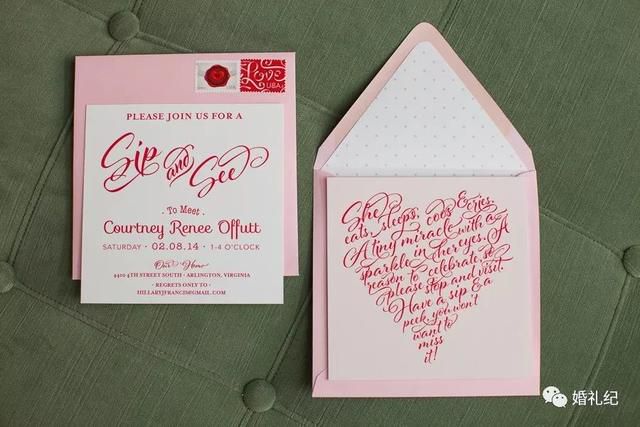 Love
USA
PLEASE JOIN US FOR A
Sip and See
· To Meet ·
Courtney Renee Offutt
SATURDAY · 02.08.14 · 1-4 O'CLOCK
Our Home
4420 4TH STREET SOUTH · ARLINGTON, VIRGINIA
· REGRETS ONLY TO ·
HILLARYJFRANCIS@GMAIL.COM
She
eats, sleeps, coos & cries.
A tiny miracle with a
sparkle in her eyes. A
reason to celebrate, so
please stop and visit.
Have a sip & a
peek, you won't
want to
miss
it!
婚礼纪